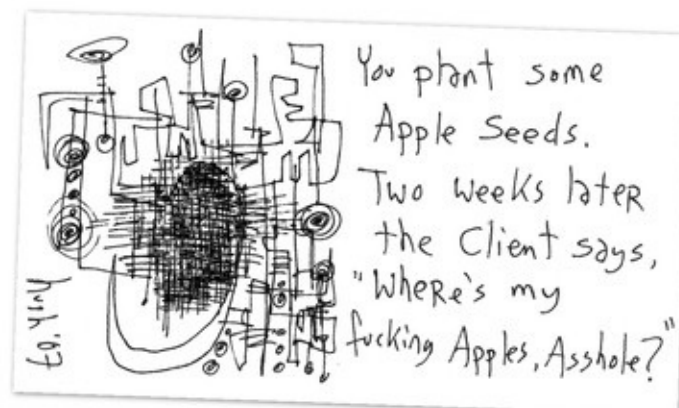 You plant some
Apple Seeds.
Two weeks later
the Client says,
"Where's my
fucking Apples, Asshole?"
hugh '07